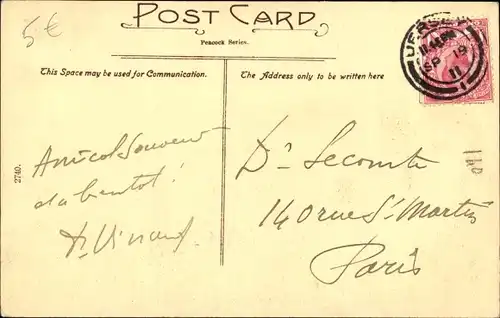 5 €
POST CARD
Peacock Series.
This Space may be used for Communication.
The Address only to be written here
JERSEY
SP 19
11
1
2740.
Amical Souvenir
et a bientot!
Dr Lecomte
140 rue St Martin
Paris
140